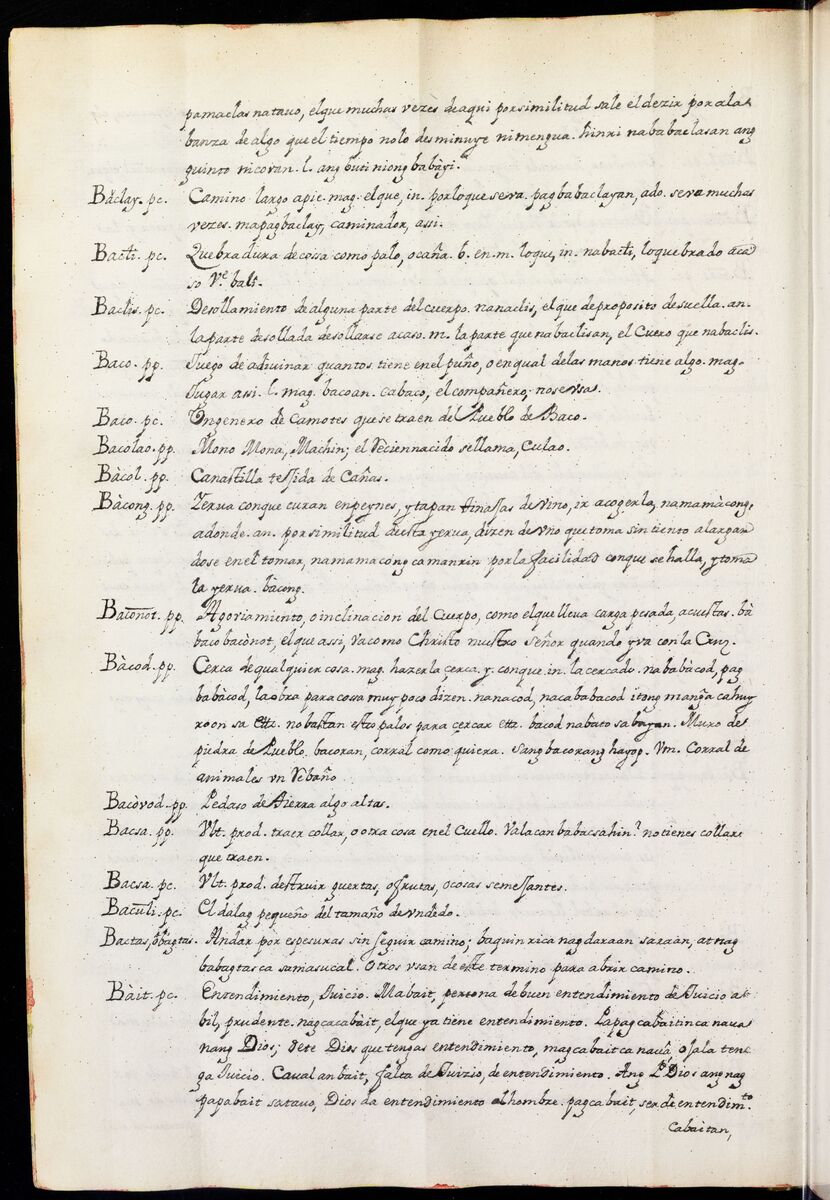 pamaclas natauo, elque muchas vezès deaqui porsimilitud sale el dezir por ala-
banza de algo que el tiempo nolo desminuye nimengua. hinri nababaclasan ang
guinto nicoyan. l. ang puti niong babàyi.
Bàclay. pc. Camino largo apie. mag. elque, in. porloque seva. pagbabaclayan, ado. seva muchas
vezes. mapagbaclay, caminador, assi.
Bacti. pc. Quebradura decossa como palo, ocaña. b. en. m. loque, in. nabacti, loquebrado aca
so Ve. bali.
Baclis. pc. Desollamiento dealguna parte del cuerpo. nanaclis, el que deproposito desuella. an.
laparte desollada desollarse acaso. m. la parte que nabaclisan, el Cuero que nabaclis.
Baco. pp. Juego de adivinar quantos tiene enel puño, oenqual delas manos tiene algo. mag.
Jugar assi. l. mag. bacoan. cabaco, el compañero; noseusa.
Baco. pc. Vngenero de Camotes que se traen del Pueblo de Baco.
Bacolao. pp. Mono Mona, Machin; el Reciennacido sellama, Culao.
Bàcol. pp. Canastilla tessida de Cañas.
Bàcong. pp. Yerua conque curan enpeynes, ytapan tinassas de vino, ir acogerla, namamàcong,
adonde. an. porsimilitud desta yerua, dizen de vno quetoma sin tiento alargan
dose en el tomar, namamacóng camanrin porla facilidad conque sehalla, ytoma
la yerua. bàcong.
Baconot. pp. Agoviamiento, oinclinacion del Cuerpo, como elquelleva carga pesada, acuestas. bà
baco bacònot, elque assi, vacomo Christo nuestro Señor quando yva conla Cruz.
Bàcod. pp. Cerca dequalquier cosa. mag. hazerla çerca. y. conque. in. lacercado. nababàcod, pag
babàcod, laobra paracossa muy poco dizen. nanacod, nacababacod itong manga cahuy
roon sa Ett. nobastan estos palos para çercar ett. bacod nabato sabayan. Muro de
piedra de Pueblo. bacoran, corral como quiera. sangbacorang hayop. Vm. Corral de
animales vn Rebaño
Bacòvod. pp. Pedaso de tierra algo altas.
Bacsa. pp. Vlt. prod. traer collar, o otra cosa en el Cuello. Valacanbabacsahin? notienes collar
que traen.
Bacsa. pc. Vlt. prod. destruir guertas, ofrutas, ocosas semejantes.
Baculi. pc. El dalag pequeño del tamaño de vndedo.
Bactas, l. bagtas. Andar por espesuras sin seguir camino; baquin rica nagdaraan saraàn, atnag
babagtas ca samasucal. Otros vsan deeste termino para abrir camino.
Bàit. pc. Entendimiento, Juicio. Mabait, persona debuen entendimiento de Juicio a
bil, prudente. nagcacabàit, elque ya tiene entendimiento. Papagcabaitinca naua
nang Dios; dete Dios que tengas entendimiento, magcabait ca nauà, ojala ten-
ga Juicio. Caualanbait, falta de Juizio, de entendimiento. Ang Pe. Dios ang nag
papabait satauo, Dios da entendimiento alhombre. pagcabait, ser de entendimto.
Cabaitan,